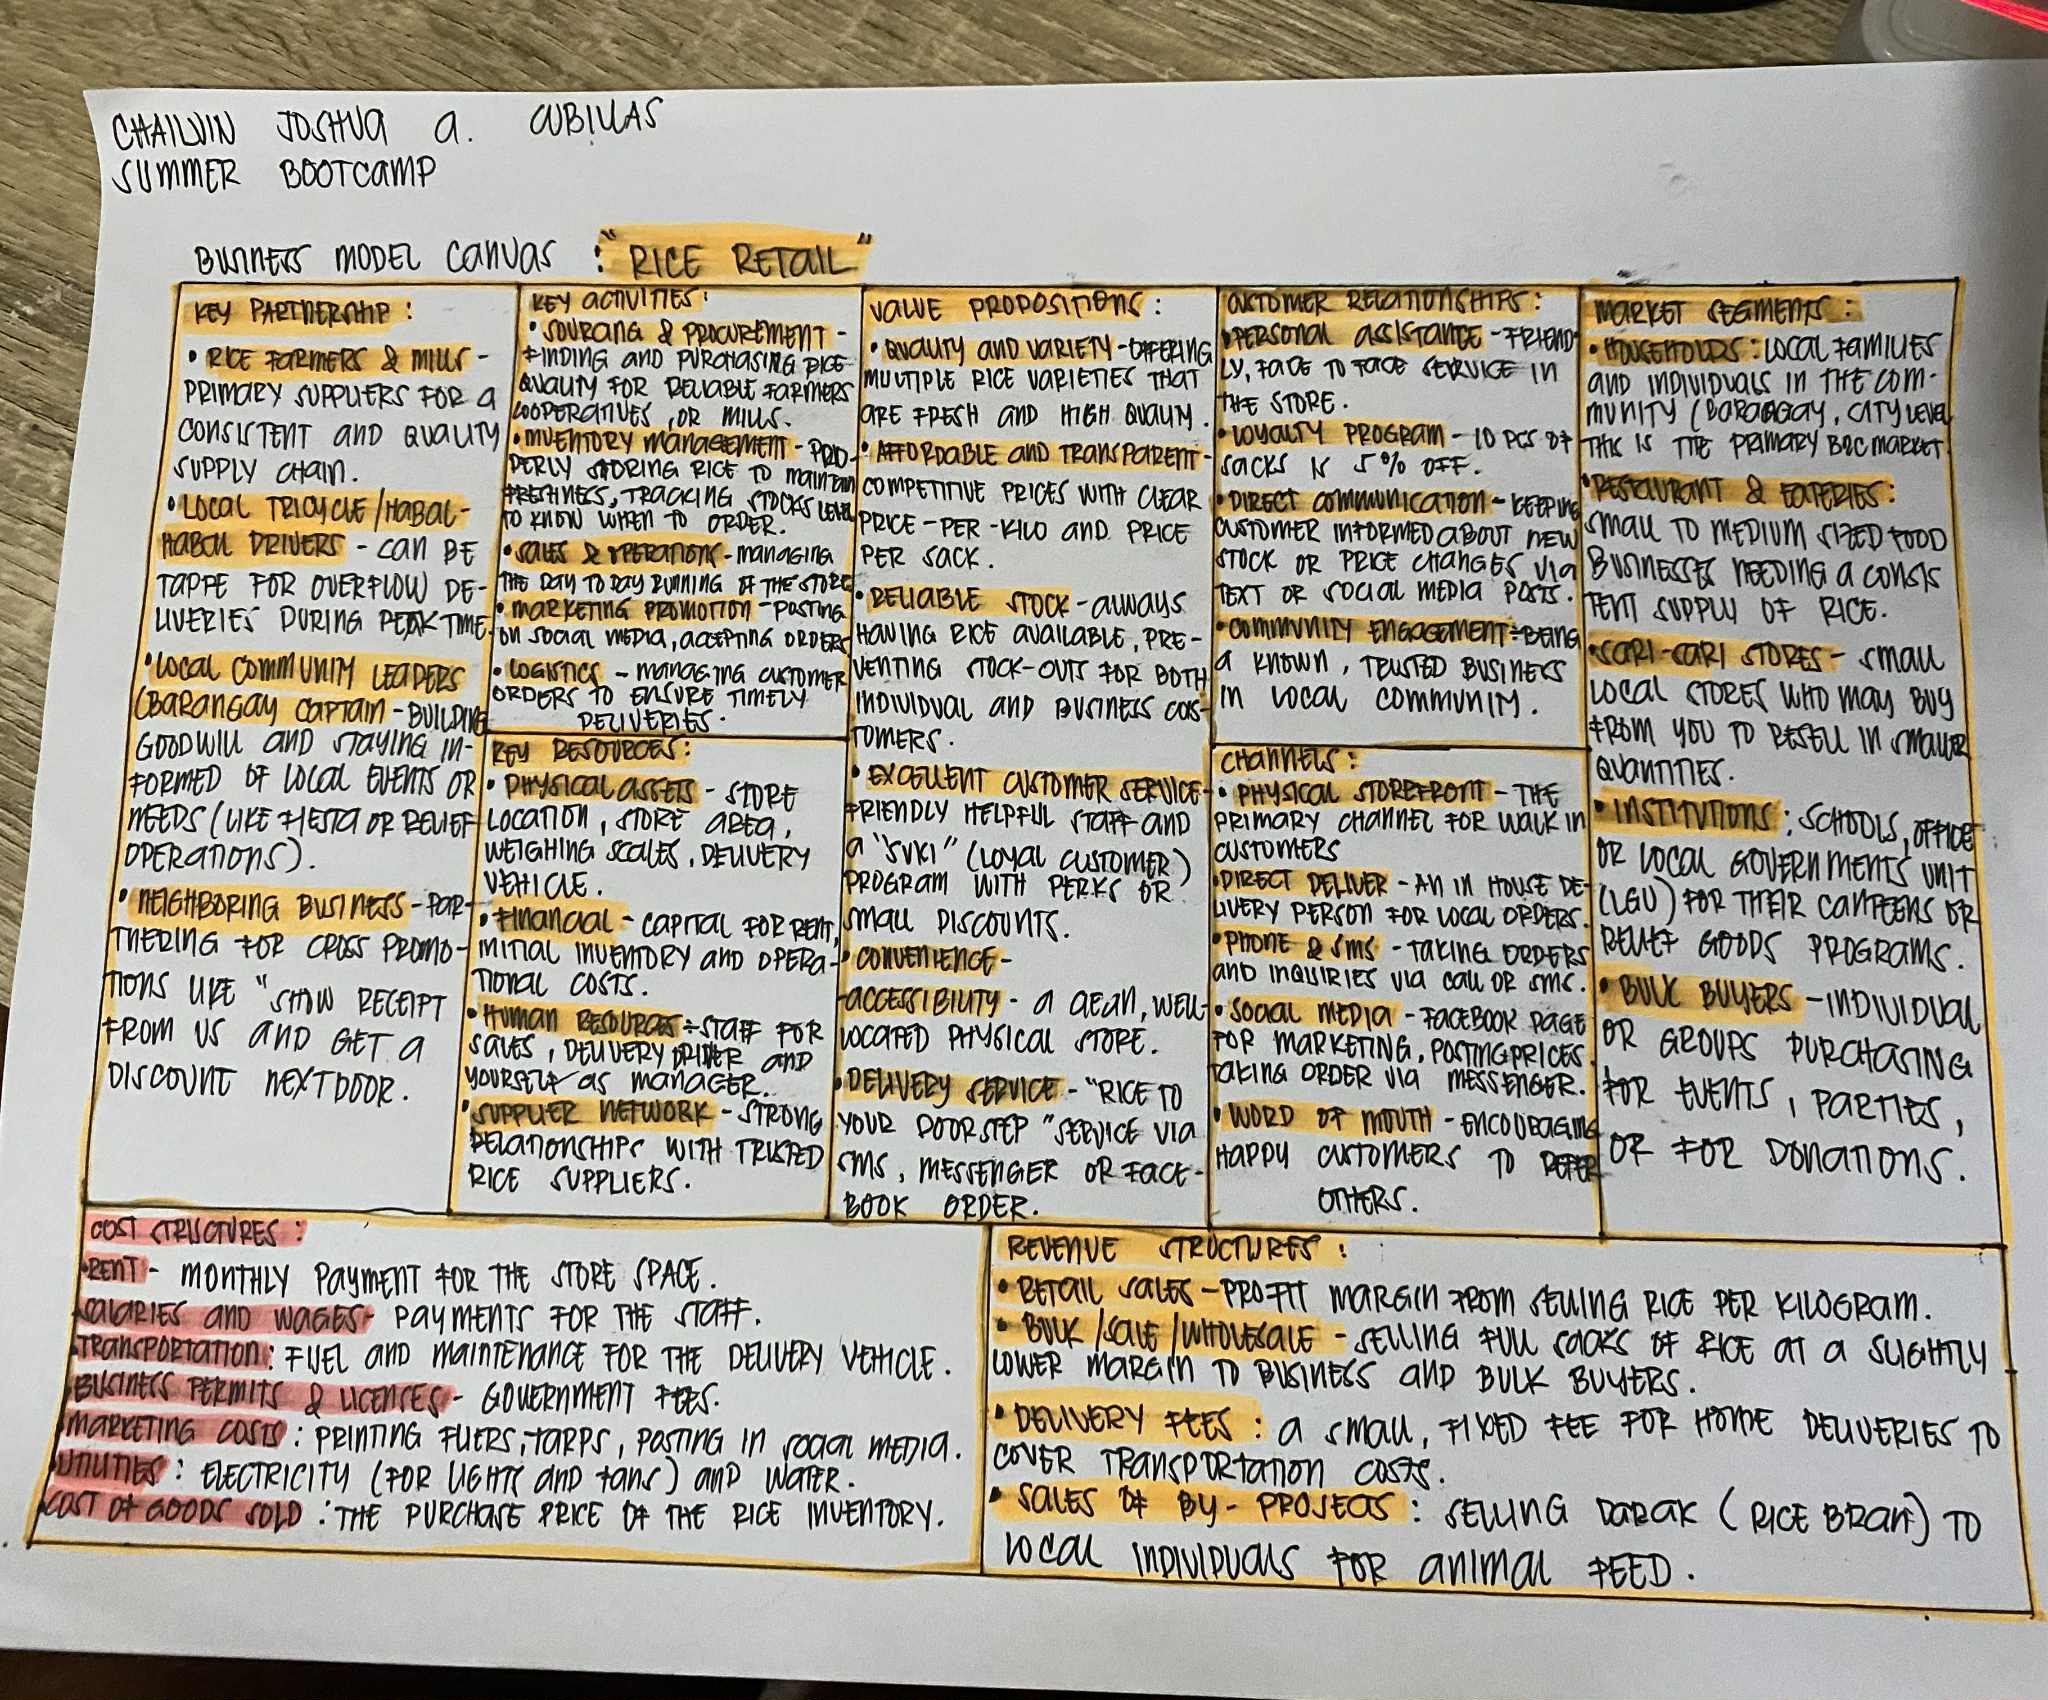 CHAILVIN JOSHUA A. CUBILLAS
SUMMER BOOTCAMP
BUSINESS MODEL CANVAS : "RICE RETAIL"
KEY PARTNERSHIP :
• RICE FARMERS & MILLS -
PRIMARY SUPPLIERS FOR A
CONSISTENT AND QUALITY
SUPPLY CHAIN.
• LOCAL TRICYCLE/HABAL-
HABAL DRIVERS - CAN BE
TAPPE FOR OVERFLOW DE-
LIVERIES DURING PEAK TIME.
• LOCAL COMMUNITY LEADERS
(BARANGAY CAPTAIN - BUILDING
GOODWILL AND STAYING IN-
FORMED OF LOCAL EVENTS OR
NEEDS (LIKE FIESTA OR RELIEF
OPERATIONS).
• NEIGHBORING BUSINESS - PAR-
THERING FOR CROSS PROMO-
TIONS LIKE "SHOW RECEIPT
FROM US AND GET A
DISCOUNT NEXT DOOR.
KEY ACTIVITIES :
• SOURCING & PROCUREMENT -
FINDING AND PURCHASING RICE
QUALITY FOR RELIABLE FARMERS
COOPERATIVES, OR MILLS.
• INVENTORY MANAGEMENT - PRO-
PERLY STORING RICE TO MAINTAIN
FRESHNESS, TRACKING STOCKS LEVEL
TO KNOW WHEN TO ORDER.
• SALES & OPERATIONS - MANAGING
THE DAY TO DAY RUNNING OF THE STORE
• MARKETING PROMOTION - POSTING
ON SOCIAL MEDIA, ACCEPTING ORDERS
• LOGISTICS - MANAGING CUSTOMER
ORDERS TO ENSURE TIMELY
DELIVERIES.
KEY RESOURCES :
• PHYSICAL ASSETS - STORE
LOCATION, STORE AREA,
WEIGHING SCALES, DELIVERY
VEHICLE.
• FINANCIAL - CAPITAL FOR RENT,
INITIAL INVENTORY AND OPERA-
TIONAL COSTS.
• HUMAN RESOURCES - STAFF FOR
SALES, DELIVERY DRIVER AND
YOURSELF AS MANAGER.
• SUPPLIER NETWORK - STRONG
RELATIONSHIPS WITH TRUSTED
RICE SUPPLIERS.
VALUE PROPOSITIONS :
• QUALITY AND VARIETY - OFFERING
MULTIPLE RICE VARIETIES THAT
ARE FRESH AND HIGH QUALITY.
• AFFORDABLE AND TRANSPARENT -
COMPETITIVE PRICES WITH CLEAR
PRICE-PER-KILO AND PRICE
PER SACK.
• RELIABLE STOCK - ALWAYS
HAVING RICE AVAILABLE, PRE-
VENTING STOCK-OUTS FOR BOTH
INDIVIDUAL AND BUSINESS COS-
TOMERS.
• EXCELLENT CUSTOMER SERVICE -
FRIENDLY HELPFUL STAFF AND
A "SUKI" (LOYAL CUSTOMER)
PROGRAM WITH PERKS OR
SMALL DISCOUNTS.
• CONVENIENCE -
ACCESSIBILITY - A CLEAN, WELL-
LOCATED PHYSICAL STORE.
• DELIVERY SERVICE - "RICE TO
YOUR DOORSTEP" SERVICE VIA
SMS, MESSENGER OR FACE-
BOOK ORDER.
CUSTOMER RELATIONSHIPS :
• PERSONAL ASSISTANCE - FRIEND-
LY, FACE TO FACE SERVICE IN
THE STORE.
• LOYALTY PROGRAM - 10 PCS OF
SACKS IS 5% OFF.
• DIRECT COMMUNICATION - KEEPING
CUSTOMER INFORMED ABOUT NEW
STOCK OR PRICE CHANGES VIA
TEXT OR SOCIAL MEDIA POSTS.
• COMMUNITY ENGAGEMENT - BEING
A KNOWN, TRUSTED BUSINESS
IN LOCAL COMMUNITY.
CHANNELS :
• PHYSICAL STOREFRONT - THE
PRIMARY CHANNEL FOR WALK IN
CUSTOMERS
• DIRECT DELIVER - AN IN HOUSE DE-
LIVERY PERSON FOR LOCAL ORDERS.
• PHONE & SMS - TAKING ORDERS
AND INQUIRIES VIA CALL OR SMS.
• SOCIAL MEDIA - FACEBOOK PAGE
FOR MARKETING, POSTING PRICES
TAKING ORDER VIA MESSENGER.
• WORD OF MOUTH - ENCOURAGING
HAPPY CUSTOMERS TO REFER
OTHERS.
MARKET SEGMENTS :
• HOUSEHOLDS : LOCAL FAMILIES
AND INDIVIDUALS IN THE COM-
MUNITY (BARANGAY, CITY LEVEL
THIS IS THE PRIMARY B2C MARKET.
• RESTAURANT & EATERIES :
SMALL TO MEDIUM SIZED FOOD
BUSINESSES NEEDING A CONSIS
TENT SUPPLY OF RICE.
• SARI-SARI STORES - SMALL
LOCAL STORES WHO MAY BUY
FROM YOU TO RESELL IN SMALLER
QUANTITIES.
• INSTITUTIONS : SCHOOLS, OFFICE
OR LOCAL GOVERNMENTS UNIT
(LGU) FOR THEIR CANTEENS OR
RELIEF GOODS PROGRAMS.
• BULK BUYERS - INDIVIDUAL
OR GROUPS PURCHASING
FOR EVENTS, PARTIES,
OR FOR DONATIONS.
COST STRUCTURES :
• RENT - MONTHLY PAYMENT FOR THE STORE SPACE.
SALARIES AND WAGES - PAYMENTS FOR THE STAFF.
TRANSPORTATION : FUEL AND MAINTENANCE FOR THE DELIVERY VEHICLE.
BUSINESS PERMITS & LICENSES - GOVERNMENT FEES.
MARKETING COSTS : PRINTING FLIERS, TARPS, POSTING IN SOCIAL MEDIA.
UTILITIES : ELECTRICITY (FOR LIGHTS AND FANS) AND WATER.
COST OF GOODS SOLD : THE PURCHASE PRICE OF THE RICE INVENTORY.
REVENUE STRUCTURES :
• RETAIL SALES - PROFIT MARGIN FROM SELLING RICE PER KILOGRAM.
• BULK/SALE/WHOLESALE - SELLING FULL SACKS OF RICE AT A SLIGHTLY
LOWER MARGIN TO BUSINESS AND BULK BUYERS.
• DELIVERY FEES : A SMALL, FIXED FEE FOR HOME DELIVERIES TO
COVER TRANSPORTATION COSTS.
• SALES OF BY-PROJECTS : SELLING DARAK (RICE BRAN) TO
LOCAL INDIVIDUALS FOR ANIMAL FEED.